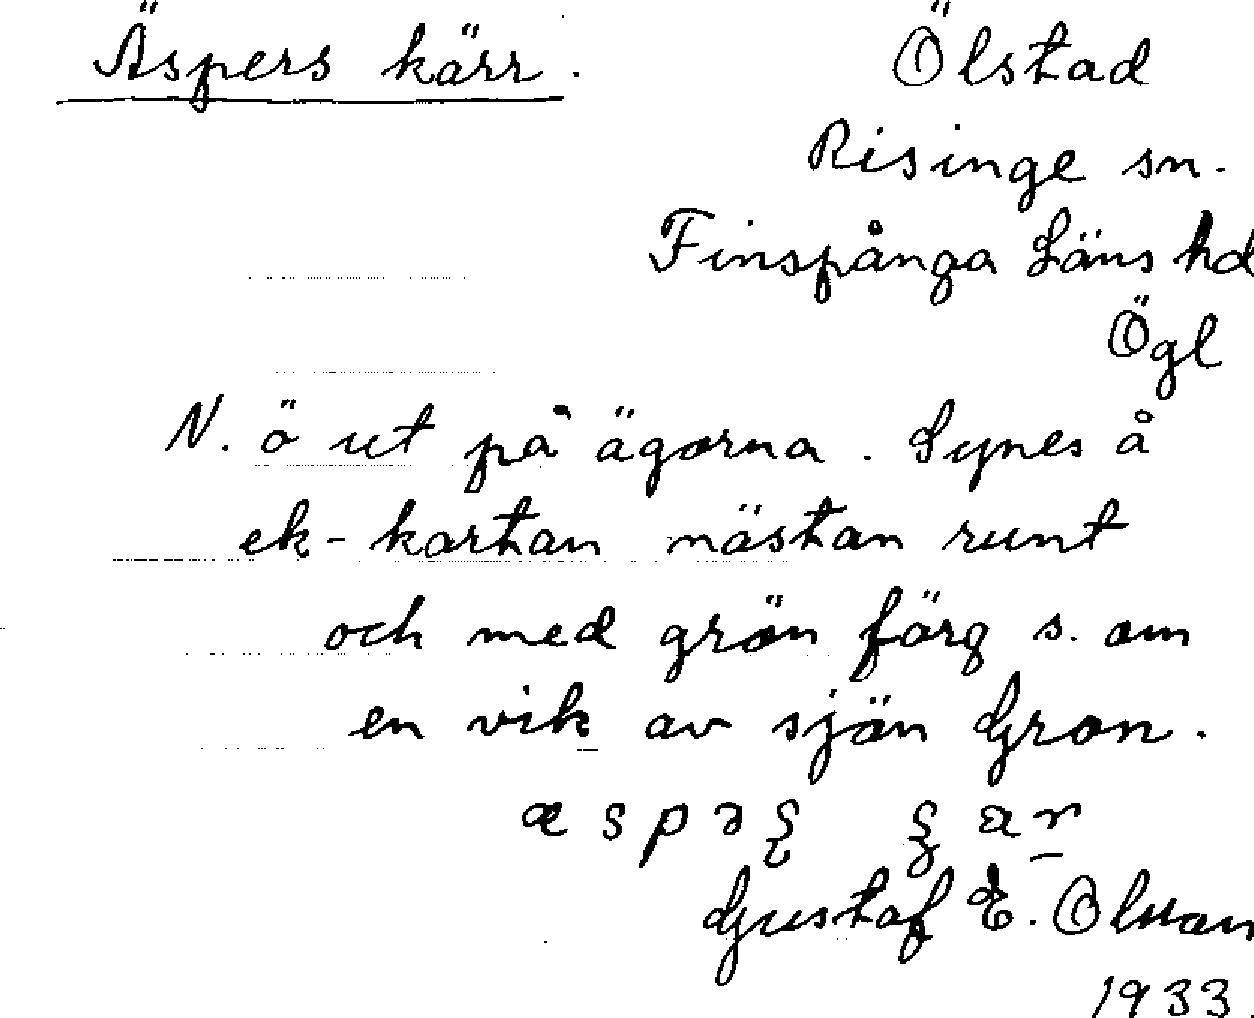 Äspers kärr. Ölstad
Risinge sn.
Finspånga Läns hd
Ögl
N. ö ut på ägorna. Synes å
ek-kartan nästan runt
och med grön färg s. om
en vik av sjön Gron.
Gustaf E. Olsson
1933.